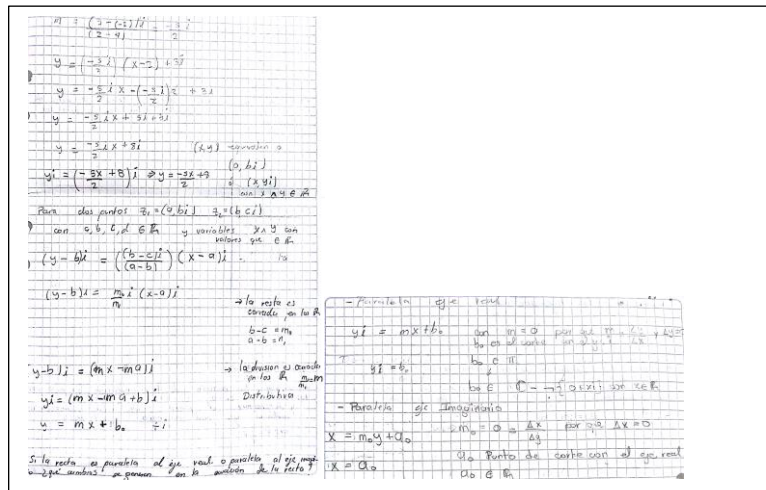 y = (-5/2 i) (x-2) + 3i
y = -5/2 i x - (-5/2 i) 2 + 3i
y = -5/2 i x + 5i + 3i
y = -5/2 i x + 8i (x,y)
(a, bi)
yi = (-5x/2 + 8) i ⇒ y = -5x/2 + 8
ó (x, yi)
con x ∧ y ∈ ℝ
Para dos puntos z₁=(a,bi) z₂=(b,ci)
con a, b, c, d ∈ ℝ y variables x ∧ y con
valores que ∈ ℝ
(y - b)i = ((b-c)i/(a-b)) (x-a)i
(y-b)i = i (x-a)i
→ la resta es
cerrada en los ℝ
b-c = m₀
y-b)i = (mx - ma)i
→ la division es cerrada
en los ℝ
yi = (mx - ma + b)i
Distributiva
y = mx + b₀ ÷ i
Si la recta es paralela al eje real o paralela al eje
¿que cambios se generan en la ecuación de la recta?
- Paralela eje real
yi = mx + b₀ con m = 0 por que
b₀ es el corte
yi = b₀
b₀ ∈
- Paralela eje Imaginario
x = m₀y + a₀ m₀ = 0 = Δx/Δy por que Δx = 0
x = a₀ a₀ Punto de corte con el eje real
a₀ ∈ ℝ